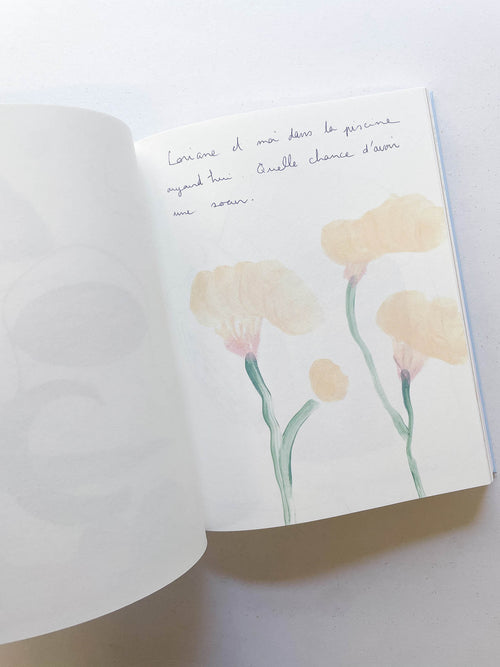 Loriane et moi dans la piscine
aujourd'hui. Quelle chance d'avoir
une soeur.